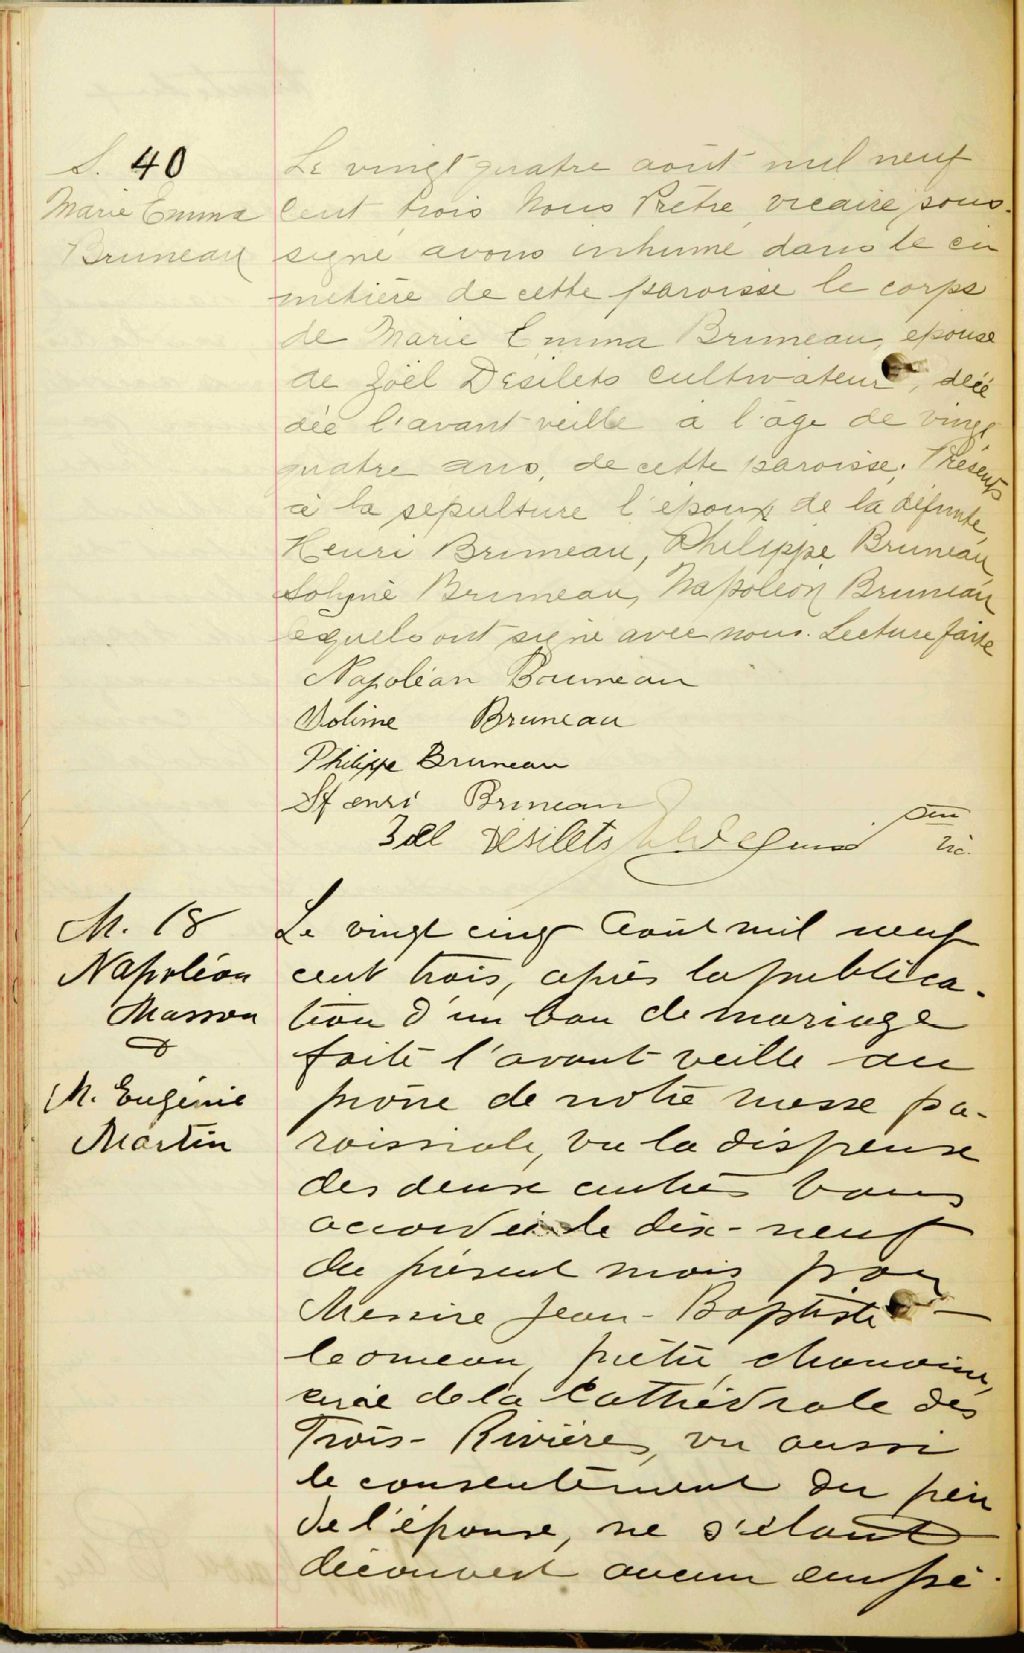 S. 40
Marie Emma
Bruneau
Le vingt quatre août mil neuf
cent trois Nous Prêtre vicaire sous-
signé avons inhumé dans le ci
metière de cette paroisse le corps
de Marie Emma Bruneau, épouse
de Joël Désilets cultivateur, décé
dée l'avant veille à l'âge de vingt
quatre ans, de cette paroisse. Présents
à la sépulture l'époux de la défunte,
Henri Bruneau, Philippe Bruneau,
Solyme Bruneau, Napoléon Bruneau
lesquels ont signé avec nous. Lecture faite
Napoléan Bouneau
Solime Bruneau
Philippe Bruneau
Henri Bruneau
Joel Désilets ptre
vic.
M. 18
Napoléon
Masson
&
M. Eugénie
Martin
Le vingt cinq Août mil neuf
cent trois, après la publica-
tion d'un ban de mariage
faite l'avant veille au
prône de notre messe pa-
roissiale, vu la dispense
des deux autres bans
accordée le dix-neuf
du présent mois par
Messire Jean-Baptiste
Comeau, prêtre, chanoine,
curé de la Cathédrale des
Trois-Rivières, vu aussi
le consentement du père
de l'épouse, ne s'étant
découvert aucun empê-